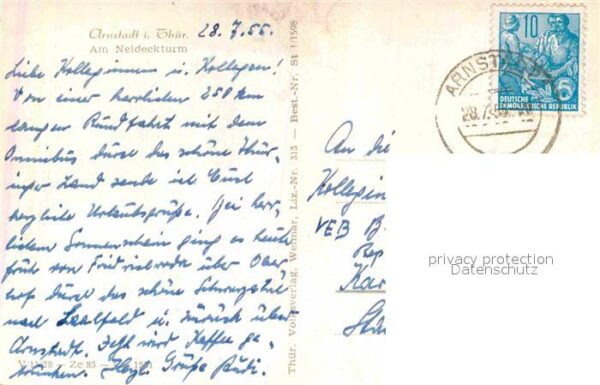 Arnstadt i. Thür. 28.7.55.
Am Neideckturm
Liebe Kolleginnen u. Kollegen!
Von einer herrlichen 250 km
langen Rundfahrt mit dem
Omnibus durch das schöne Thür-
inger Land sende ich Euch
herzliche Urlaubsgrüße. Bei herr-
lichem Sonnenschein ging es heute
früh von Friedrichroda über Ober-
hof durch das schöne Schwarzatal
nach Saalfeld u. zurück über
Arnstadt. Jetzt wird Kaffee ge-
trunken. Herzl. Grüße Rudi.
V 11 28 — Ze 85
Thür. Volksverlag, Weimar, Liz.-Nr. 313 — Best.-Nr. St 1/1598
10
DEUTSCHE
DEMOKRATISCHE REPUBLIK
ARNST
An die
Kollegin
VEB B.
Rep
Kar
Sta
privacy protection
Datenschutz